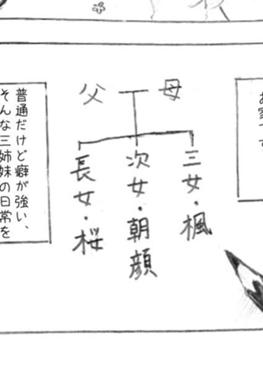 お家です
父
母
三女・楓
次女・朝顔
長女・桜
普通だけど癖が強い、
そんな三姉妹の日常を